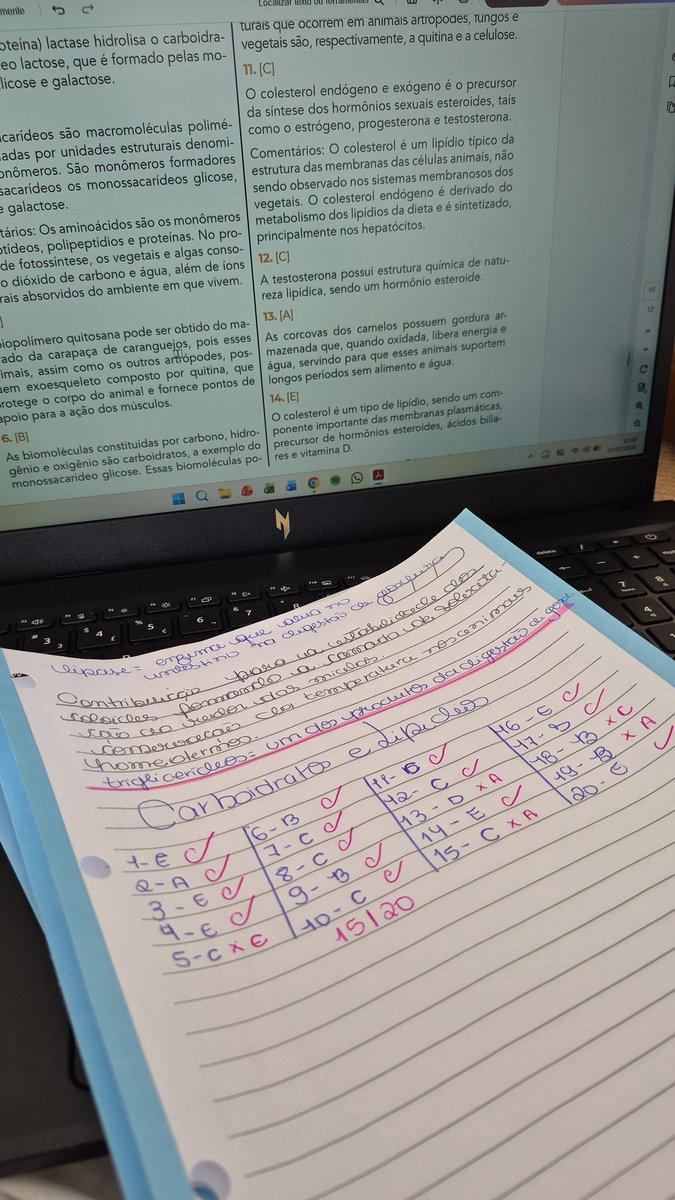 mente
Localizar texto ou ferramentas
oteína) lactase hidrolisa o carboidra-
eo lactose, que é formado pelas mo-
licose e galactose.
carídeos são macromoléculas polimé-
adas por unidades estruturais denomi-
onômeros. São monômeros formadores
ssacarídeos os monossacarídeos glicose,
e galactose.
tários: Os aminoácidos são os monômeros
ptídeos, polipeptídios e proteínas. No pro-
de fotossíntese, os vegetais e algas conso-
o dióxido de carbono e água, além de íons
rais absorvidos do ambiente em que vivem.
]
biopolímero quitosana pode ser obtido do ma-
rado da carapaça de caranguejos, pois esses
imais, assim como os outros artrópodes, pos-
uem exoesqueleto composto por quitina, que
protege o corpo do animal e fornece pontos de
apoio para a ação dos músculos.
6. [B]
As biomoléculas constituídas por carbono, hidro-
gênio e oxigênio são carboidratos, a exemplo do
monossacarídeo glicose. Essas biomoléculas po-
turais que ocorrem em animais artrópodes, fungos e
vegetais são, respectivamente, a quitina e a celulose.
11. [C]
O colesterol endógeno e exógeno é o precursor
da síntese dos hormônios sexuais esteroides, tais
como o estrógeno, progesterona e testosterona.
Comentários: O colesterol é um lipídio típico da
estrutura das membranas das células animais, não
sendo observado nos sistemas membranosos dos
vegetais. O colesterol endógeno é derivado do
metabolismo dos lipídios da dieta e é sintetizado,
principalmente nos hepatócitos.
12. [C]
A testosterona possui estrutura química de natu-
reza lipídica, sendo um hormônio esteroide.
13. [A]
As corcovas dos camelos possuem gordura ar-
mazenada que, quando oxidada, libera energia e
água, servindo para que esses animais suportem
longos períodos sem alimento e água.
14. [E]
O colesterol é um tipo de lipídio, sendo um com-
ponente importante das membranas plasmáticas,
precursor de hormônios esteroides, ácidos bilia-
res e vitamina D.
10
17
12:18
lipase = enzima que atua no
intestino na digestão de gordura
Contribuição para a estabilidade dos
coloides formando a camada de solvata-
ção ao redor das micelas.
conservação da temperatura nos animais
homeotermos.
triglicerídeos = um dos produtos da digestão de gord.
Carboidratos e lipídeos
1-E
2-A
3-E
4-E
5-C x E
6-B
7-C
8-C
9-B
10-C
15/20
12-C
13-D x A
14-E
15-C x A
16-E
17-D
18-B x C
19-B x A
20-E